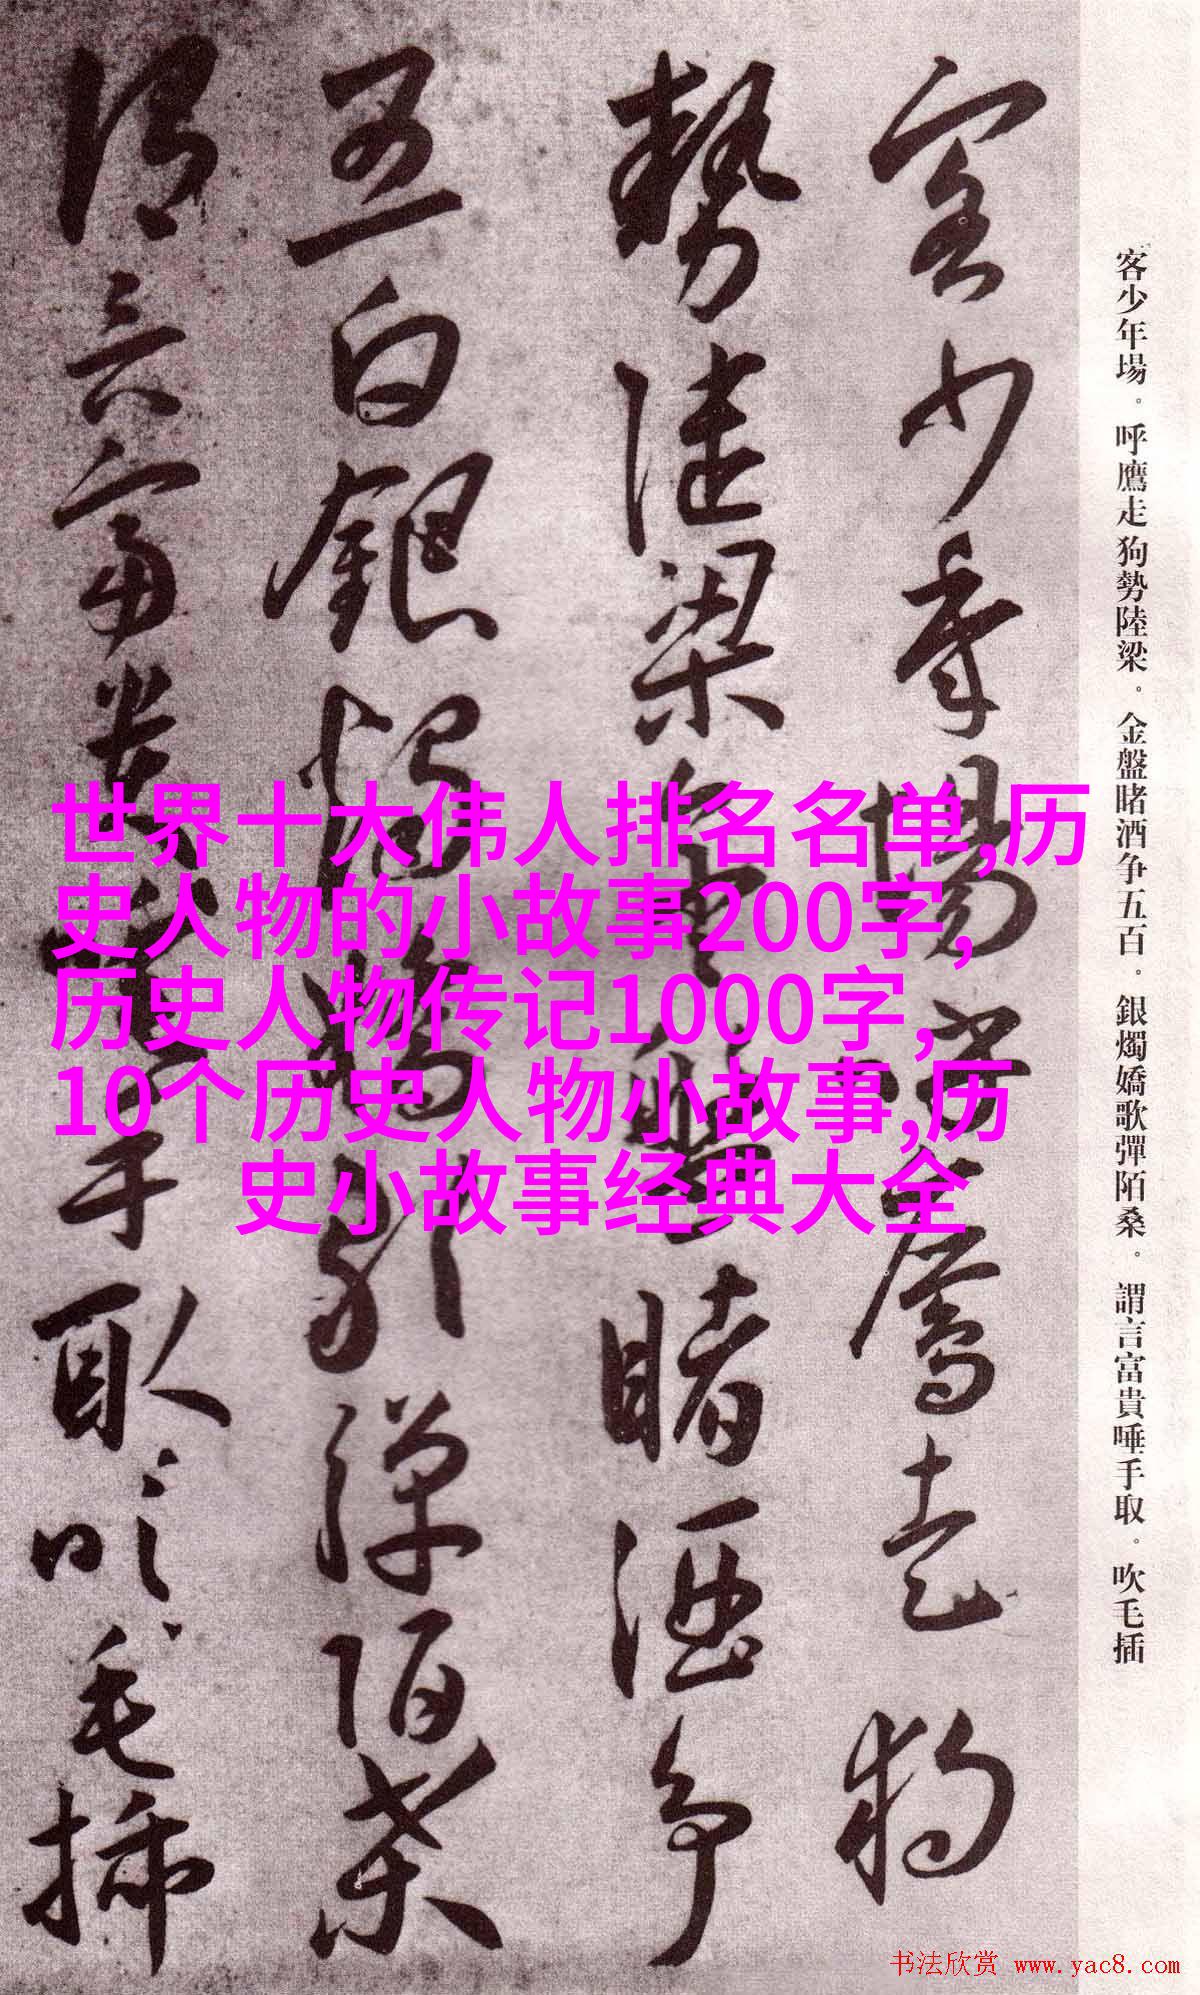 客少年場。呼鷹走狗勢陸梁。金盤睹酒争五百。銀燭嬌歌彈陌桑。謂言富貴唾手取。吹毛插
客少年場呼鷹走狗
勢陸梁金盤睹酒争
五白銀燭嬌歌彈陌桑
謂言富貴唾手取吹毛插
世界十大伟人排名名单,历
史人物的小故事200字,
历史人物传记1000字,
10个历史人物小故事,历
史小故事经典大全
书法欣赏 www.yac8.com